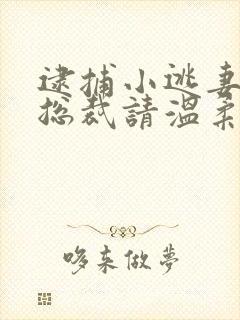 逮捕小逃妻
总裁請温柔
哆来做夢